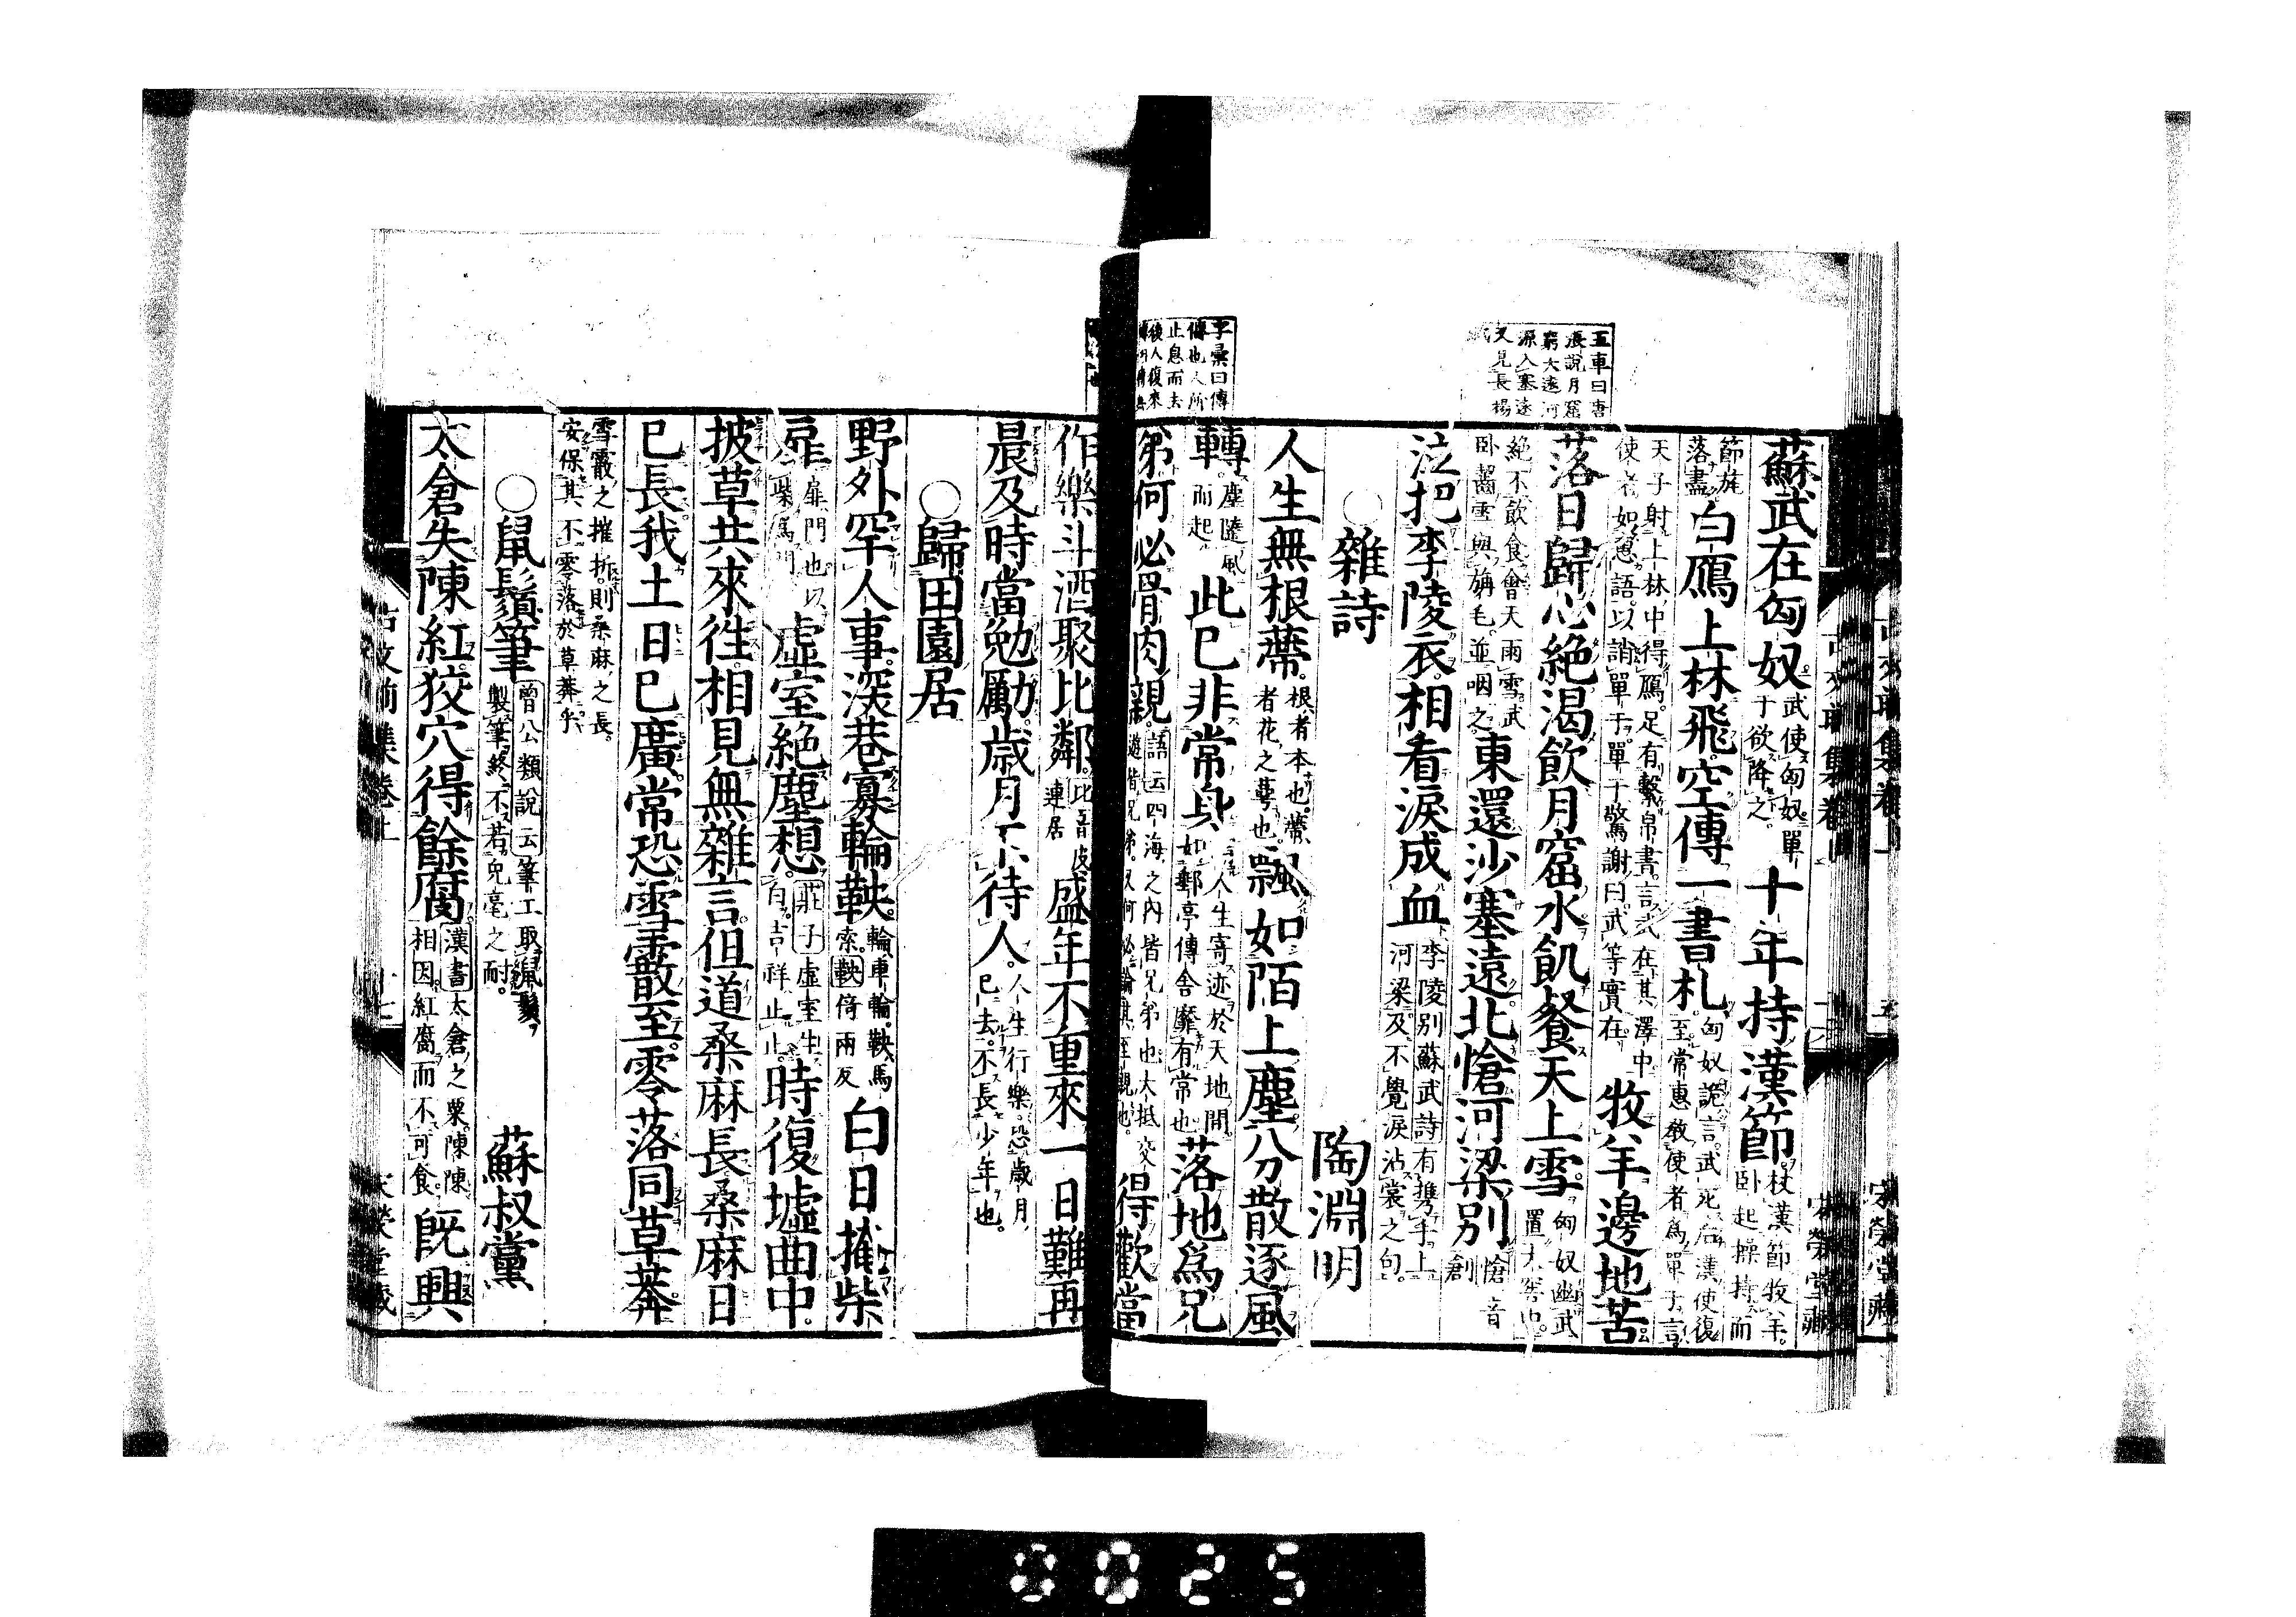 五車曰唐
浪說月窟
窮大遠河
源入塞遠
又見長楊
蘇武在匈奴武使匈奴單于欲降之十年持漢節杖漢節牧羊臥起操持而
節旄落盡白鴈上林飛空傳一書札匈奴詭言武死後漢使復至常惠教使者爲單于言
天子射上林中得鴈足有繫帛書言武在某澤中使者如惠語以誚單于單于驚謝曰武等實在牧羊邊地苦
落日歸心絕渴飲月窟水飢餐天上雪匈奴幽武置大窖中
絕不飲食會天雨雪武臥齧雪與旃毛並咽之東還沙塞遠北愴河梁別愴音創
泣把李陵衣相看淚成血李陵別蘇武詩有攜手上河梁及不覺淚沾裳之句
○雜詩 陶淵明
人生無根蔕根者本也蔕者花之萼也飄如陌上塵分散逐風
字彙曰傳
傳也人所
止息而去
後人復來
轉塵隨風而起此已非常身言人生寄迹於天地間如郵亭傳舍靡有常也落地爲兄
弟何必骨肉親語云四海之內皆兄弟也大抵交遊皆兄弟奴何必論其至親也得歡當
作樂斗酒聚比鄰比音皮連居盛年不重來一日難再
晨及時當勉勵歲月不待人人生行樂恐歲月已去不長少年也
○歸田園居
野外罕人事深巷寡輪鞅輪車輪鞅馬索鞅倚兩反白日掩柴
扉扉門也以柴爲門虛室絕塵想莊子虛室生白吉祥止止時復墟曲中
披草共來徃相見無雜言但道桑麻長桑麻日
已長我土日已廣常恐雪霰至零落同草莽
雪霰之摧折則桑麻之長安保其不零落於草莽乎
○鼠鬚筆曾公類說云筆工取鼠鬚製筆終不若兔毫之耐 蘇叔黨
太倉失陳紅狡穴得餘腐漢書太倉之粟陳陳相因紅腐而不可食旣興